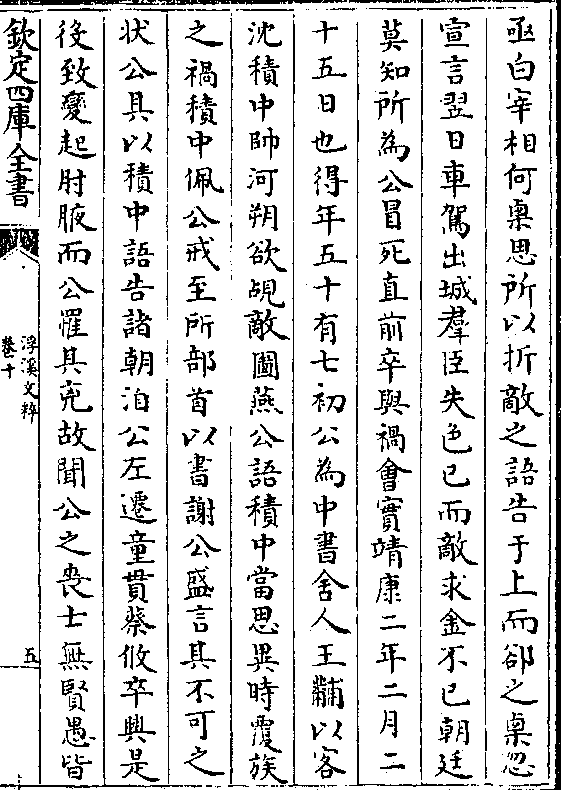 亟白宰相何㮚思所以折敵之語告于上而郤之㮚忽
宣言翌日車駕出城羣臣失色已而敵求金不已朝廷
莫知所為公冒死直前卒與禍會實靖康二年二月二
十五日也得年五十有七初公為中書舍人王黼以客
沈積中帥河朔欲覘敵圖燕公語積中當思異時覆族
之禍積中佩公戒至所部首以書謝公盛言其不可之
状公具以積中語告諸朝洎公左遷童貫蔡攸卒興是
後致變起肘腋而公罹其兇故聞公之喪士無賢愚皆
欽定四庫全書
浮溪文粹
卷十
五